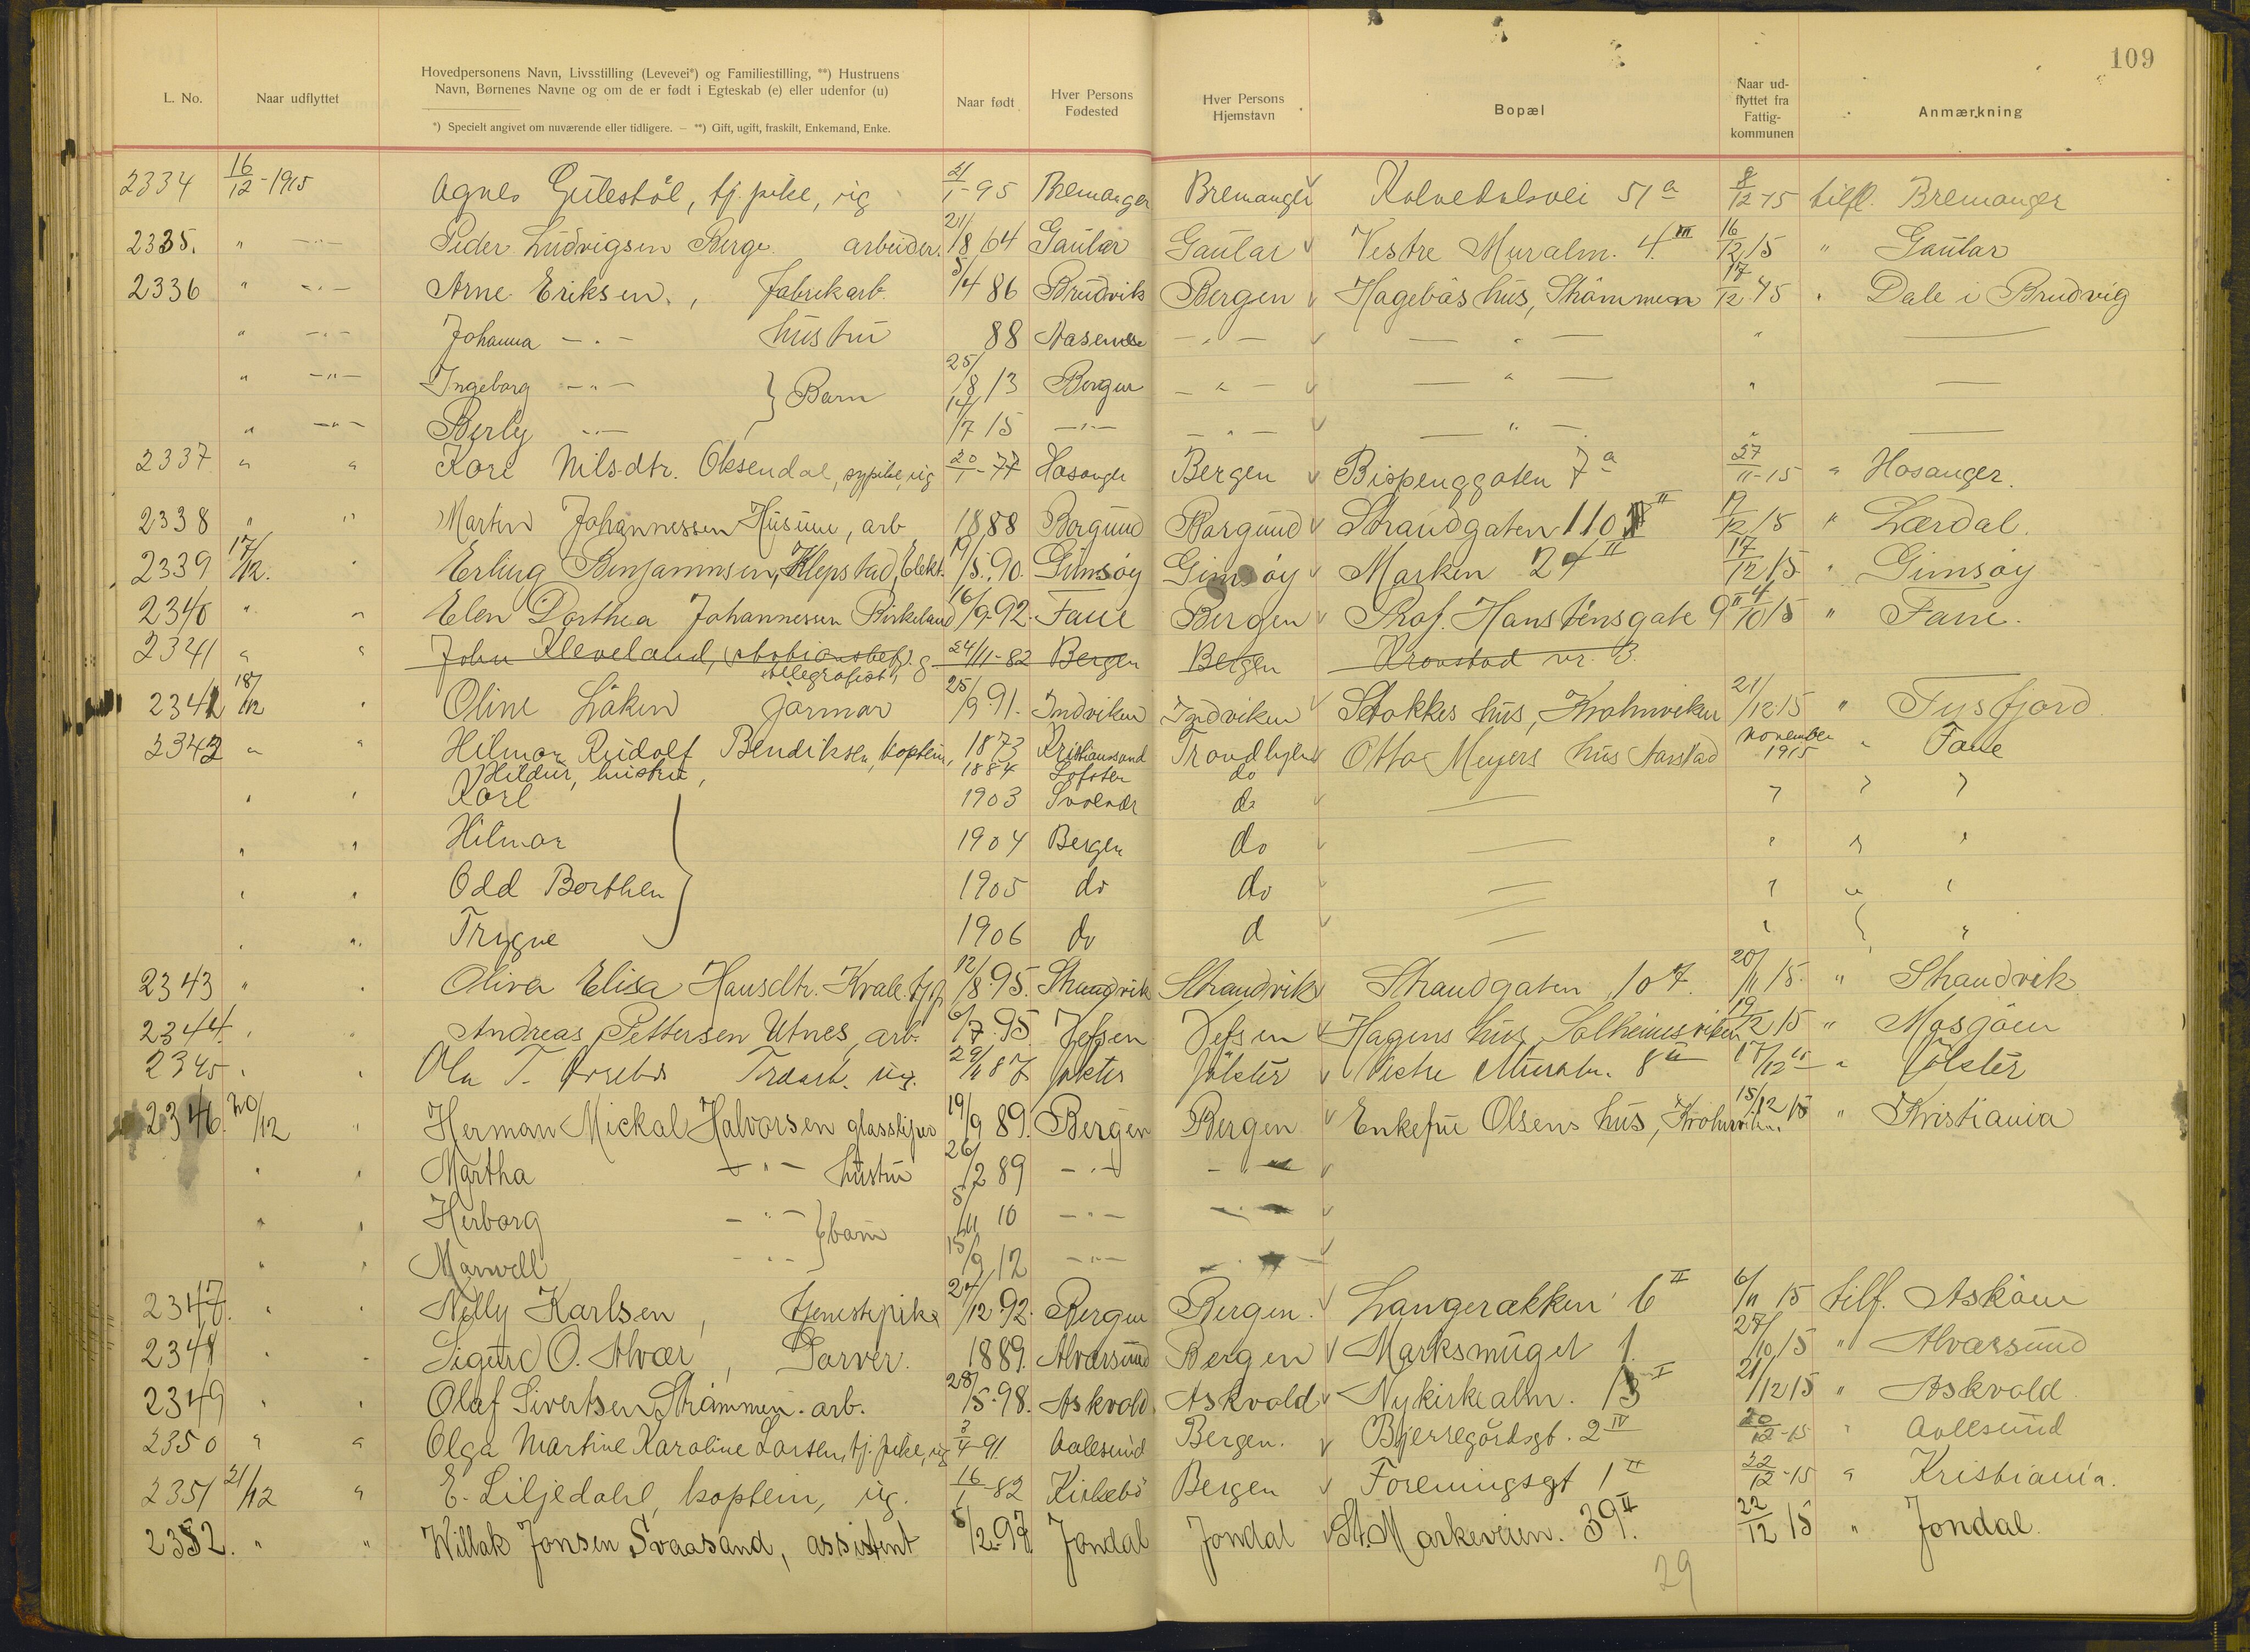 109
L. No. Naar udflyttet Hovedpersonens Navn, Livsstilling (Levevei*) og Familiestilling, **) Hustruens Navn, Børnenes Navne og om de er født i Egteskab (e) eller udenfor (u) Naar født Hver Persons Fødested Hver Persons Hjemstavn Bopæl Naar ud-flyttet fra Fattig-kommunen Anmærkning
*) Specielt angivet om nuværende eller tidligere. — **) Gift, ugift, fraskilt, Enkemand, Enke.
2334 16/12-1915 Agnes Gulestøl, tj.pike, ug 21/1-95 Bremanger Bremanger Kalvedalsvei 51a 8/12-15 tilfl. Bremanger
2335. " —"— Peder Ludvigsen Berge arbeider. 21/8 64 Gaular Gaular Vestre Muralm. 4 III 16/12 15 " Gaular
2336 " —"— Arne Eriksen, Fabrikarb. 5/4 86 Brudvik Bergen Hagebøs hus, Strømmen 17/12 15 " Dale i Brudvig
" —"— Johanna —"— hustru 88 —"— —"— " —
" —"— Ingeborg —"— } Barn 25/8 13 Bergen —"— —"— " —
" —"— Berly —"— 14/7 15 —"— —"— —"— " —
2337 " " Kari Nilsdtr. Oksendal, sypike, ug 20/1-77 Hosanger Bergen Bispenggaten 7a 27/11-15 " Hosanger.
2338 " " Martin Johannessen Husum, arb 1888 Borgund Borgund Strandgaten 110 II 17/12 15 " Lærdal.
2339 17/12. " Erling Benjaminsen Klepstad, Elekt. 19/5. 90. Gimsøy Gimsøy Marken 24 II 17/12 15 " Gimsøy
2340 " " Elen Dorthea Johannessen Birkeland 16/9-92. Fane Bergen Prof. Hansteensgate 9 II 4/10 15 " Fane.
2341 " " John Kleveland, g 24/11-82 Bergen Bergen Kronstad nr. 3.
telegrafist,
2341 18/12 " Oline Låken jormor 25/9. 91. Indviken Indviken Stokkes hus, Krohnviken 21/12 15 " Fusfjord
2342 " " Hilmar Rudolf Bendiksen, kaptein, 1873 Kristianssund Trondhjem Otto Meyers hus Aarstad november 1915 " Fane
Hildur, hustru, 1884 Lofoten do
" " Karl 1903 Svolvær do — " " "
" " Hilmar 1904 Bergen do — " " "
" " Odd Borthen } 1905 do do — " " "
" " Trygve 1906 do d — " " "
2343 " " Oliva Elisa Hansdtr. Kvale. tjp. 12/8. 95. Strandvik Strandvik Strandgaten 107. 20/11 15. " Strandvik
2344. " " Andreas Pettersen Utnes, arb. 6/7. 95. Vefsen Vefsen Hagens hus Solheimsviken 19/12 15 " Mosjøen
2345 " " Ola T. ug. 29/11 87 Jølster Jølster Vestre Muralm. 8 II 17/12 15 " Jølster
2346. 20/12 " Herman Mickal Halvorsen glassliper 19/9 89. Bergen Bergen Enkefru Olsens hus, Krohnviken 15/12 15 " Kristiania
" " Martha —"— hustru 26/2 89 —"— —"—
" " Herborg —"— } barn 5/11 10 —"— —"—
" " Marwell —"— 15/9 12 —"— —"—
2347. " " Nelly Karlsen, tjenestepike 27/12 92. Bergen Bergen. Langerækken 6 II 6/11 15 tilf. Askøen
2348 " " Sigurd O. Alvær, Garver. 1889. Alversund Bergen Marksmuget 1. 27/10 15 " Alversund
2349 " " Olaf Sivertsen Strømmen. arb. 28/5. 98. Askvold. Askvold Nykirkealm. 13 I 21/12 15 " Askvold
2350 " " Olga Martine Karoline Larsen, tj.pike, ug 3/4-91 Aalesund Bergen. Bjerregårdsgt. 2 IV 20/12-15 " Aalesund
2351 21/12 " E. Liljedahl, kaptein, ug. 16/1-82 Kirkebø Bergen Foreningsgt 1 II 22/12-15 " Kristiania.
2352. " " Willak Jonsen Svaasand, assistent 5/2. 97 Jondal Jondal St. Markeveien. 39 II. 22/12 15 " Jondal.
29